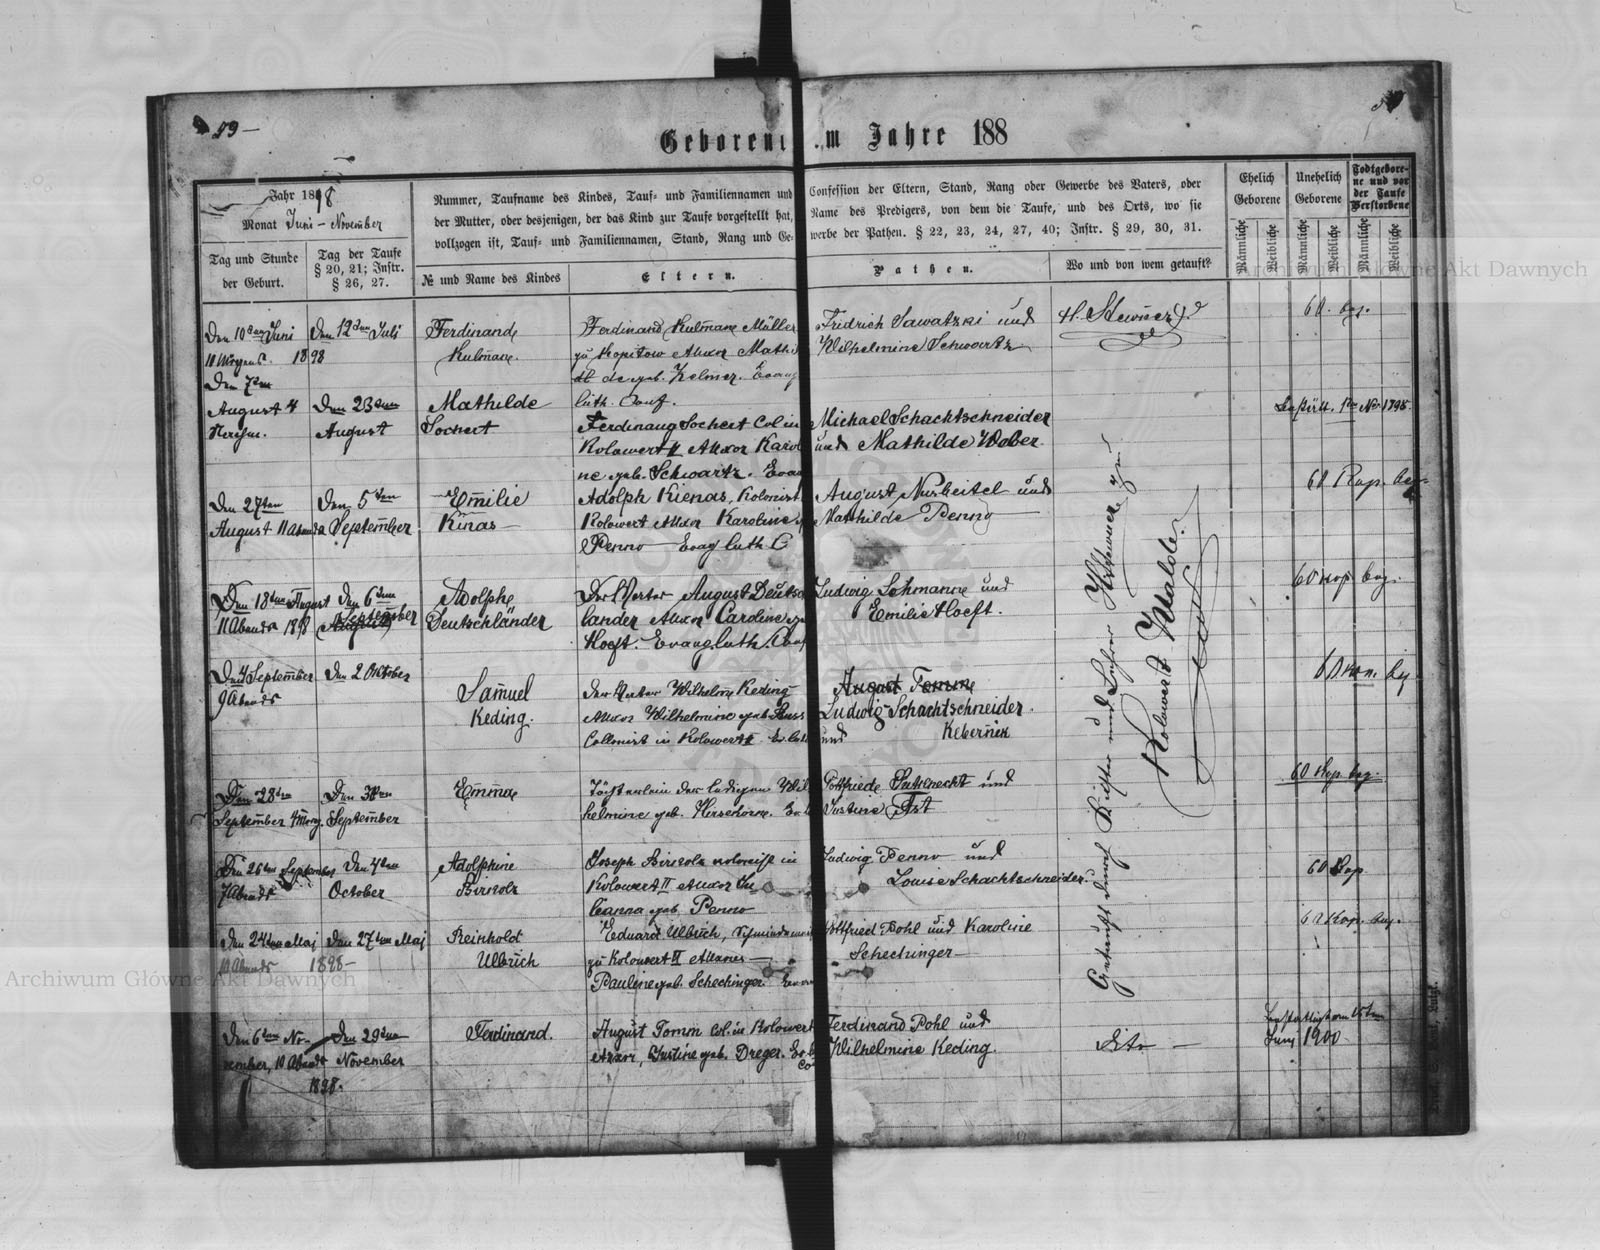 59 –
Geborene im Jahre 188
Jahr 1898
Monat Juni – November
Tag und Stunde
der Geburt.
Tag der Taufe
§ 20, 21; Instr.
§ 26, 27.
Nummer, Taufname des Kindes, Tauf- und Familiennamen und
der Mutter, oder desjenigen, der das Kind zur Taufe vorgestellt hat,
vollzogen ist, Tauf- und Familiennamen, Stand, Rang und Ge-
№ und Name des Kindes
Eltern.
Confession der Eltern, Stand, Rang oder Gewerbe des Vaters, oder
Name des Predigers, von dem die Taufe, und des Orts, wo sie
werbe der Pathen. § 22, 23, 24, 27, 40; Instr. § 29, 30, 31.
Pathen.
Wo und von wem getauft?
Ehelich
Geborene
Unehelich
Geborene
Todtgebore-
ne und vor
der Taufe
Verstorbene
Männliche
Weibliche
Männliche
Weibliche
Männliche
Weibliche
Den 10ten Juni
11 Morgens. 1898
Den 12ten Juli
Ferdinand
Kulmann.
Ferdinand Kulmann Müller
zu Kopitow Uxor Mathi
geb. Kelmer. Evang
luth. Conf.
Fridrich Sawatzki und
Wilhelmine Schwartz
60. bez.
Den 7ten
August 4
Den 23ten
August
Mathilde
Sochert
Ferdinang Sochert Col in
Kolowert II Uxor Karol
ne geb. Schwartz. Evan
Michael Schachtschneider
und Mathilde Weber.
1898.
Den 27ten
August 11 Abends
Den 5ten
September
Emilie
Kinas
Adolph Kienas, Kolonist
Kolowert Uxor Karoline
Penno Evag luth C
August Nusbeitel und
Mathilde Penno
60 Kop. bez.
Den 18ten August
11 Abends 1898
Den 6ten
August September
Adolph
Deutschländer
August Deutsch
lander Uxor Caroline
Hoeft. Evang. luth. Conf
Ludwig Lohmann und
Emilie Hoeft.
60 kop bez.
Den 4 September
9 Abends
Den 2 Oktober
Samuel
Keding.
der Vater Wilhelm Keding
Uxor Wilhelmine geb.
Collonist in Kolowert II Ev. luth
August Tomm
Ludwig Schachtschneider.
und Kebernik
60 kop. bez
Den 28ten
September 4 Morg.
Den 30ten
September
Emma
Töchterlein der ledigen Wil
helmine geb. Hirsekorn. Ev. l
Gottfriede Guttknecht und
Justine Fst
60 Kop bez.
Den 26ten September
7 Abends
Den 4ten
October
Adolphine
Birkolz
Joseph Birkolz kolonist in
Kolowert II Uxor Ju
lianna geb. Penno
Ludwig Penno und
Louise Schachtschneider.
60 Kop.
Den 24ten Maj
10 Abends
Den 27ten Maj
1898 –
Reinhold
Ulbrich
Eduard Ulbrich,
zu Kolowert II Uxores
Pauline geb. Schechinger.
Gottfried Pohl und Karoline
Schechinger
60 Kop. bez.
Den 6ten No-
vember, 10 Abends
Den 29ten
November
1898.
Ferdinand.
August Tomm Col. in Kolowert
Uxor, Justine geb. Dreger. Ev. l
Co
Ferdinand Pohl und
Wilhelmine Keding.
dito –
Juni 1900
Getauft durch Küster und Lehrer
Kolowert Walde.
Archiwum Główne Akt Dawnych
Archiwum Główne Akt Dawnych